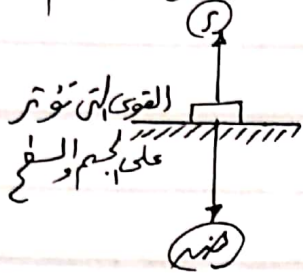 ر
القوى التي تؤثر
على الجسم والسطح